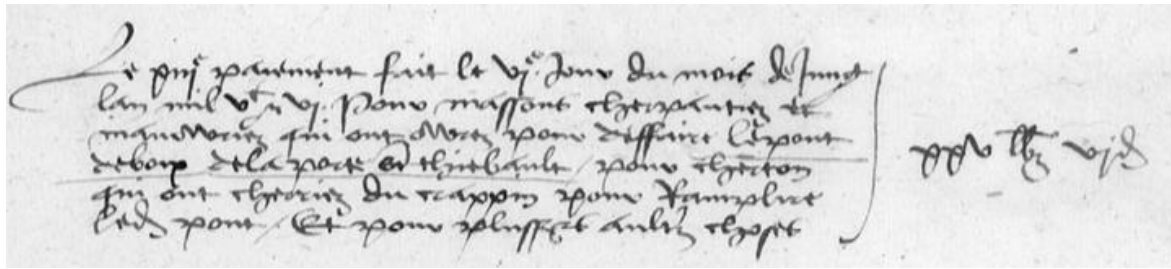 Le xviije paiement fait le vje Jour du mois de Jung
lan mil vc et vj Pour massons cherpantiez et
manuvriez qui ont ovvrez pour deffaire le pont
de boix de la porte st thiebault / pour cherton
qui ont cheriez du crappin pour Ramplire
led pont / Et pour plusseurs aultrez choses
xxv lb vjd